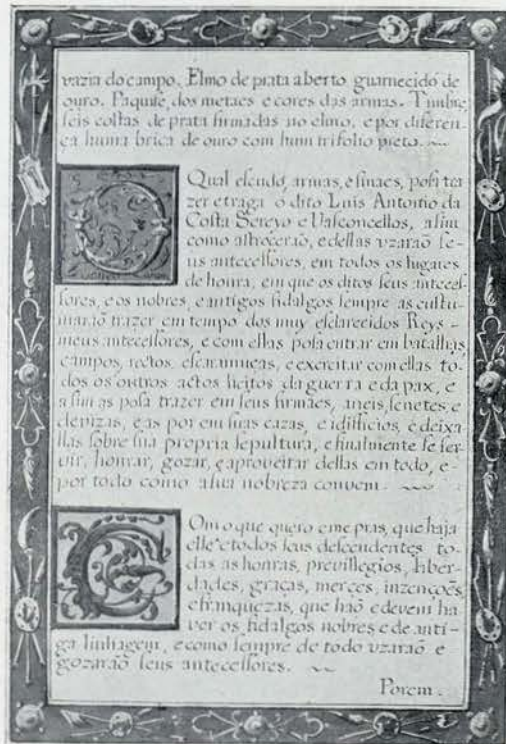 vazia do campo. Elmo de prata aberto guarnecido de
ouro. Paquife, dos metaes e cores das armas. Timbre,
seis costas de prata firmadas no elmo, e por diferen-
ça huma brica de ouro com hum trifolio preto.
O Qual escudo, armas, e sinaes, possa tra
zer e traga o dito Luis Antonio da
Costa Sereyo e Vasconcellos, assim
como as trocerão, e dellas uzarão se-
us antecessores, em todos os lugares
de honra, em que os ditos seus anteces-
sores, e os nobres, e antigos fidalgos sempre as custu-
marão trazer em tempo dos muy esclarecidos Reys -
meus antecessores, e com ellas possa entrar em batalhas,
campos, rectos, escaramuças, e exercitar com ellas to-
dos os outros actos licitos da guerra e da pax, e
assim as possa trazer em seus firmaes, aneis, senetes, e
devizas, e as por em suas cazas, e idificios, e deixa
llas sobre sua propria sepultura, e finalmente se ser-
vir, honrar, gozar, e aproveitar dellas em todo, e-
por todo como a sua nobreza convem.
Com o que quero e me pras, que haja
elle e todos seus descendentes to-
das as honras, previllegios, liber-
dades, graças, merces, inzenções,
e franquezas, que hão e devem ha-
ver os fidalgos nobres e de anti-
ga linhagem, e como sempre de todo uzarão e
gozarão seus antecessores.
Porem.